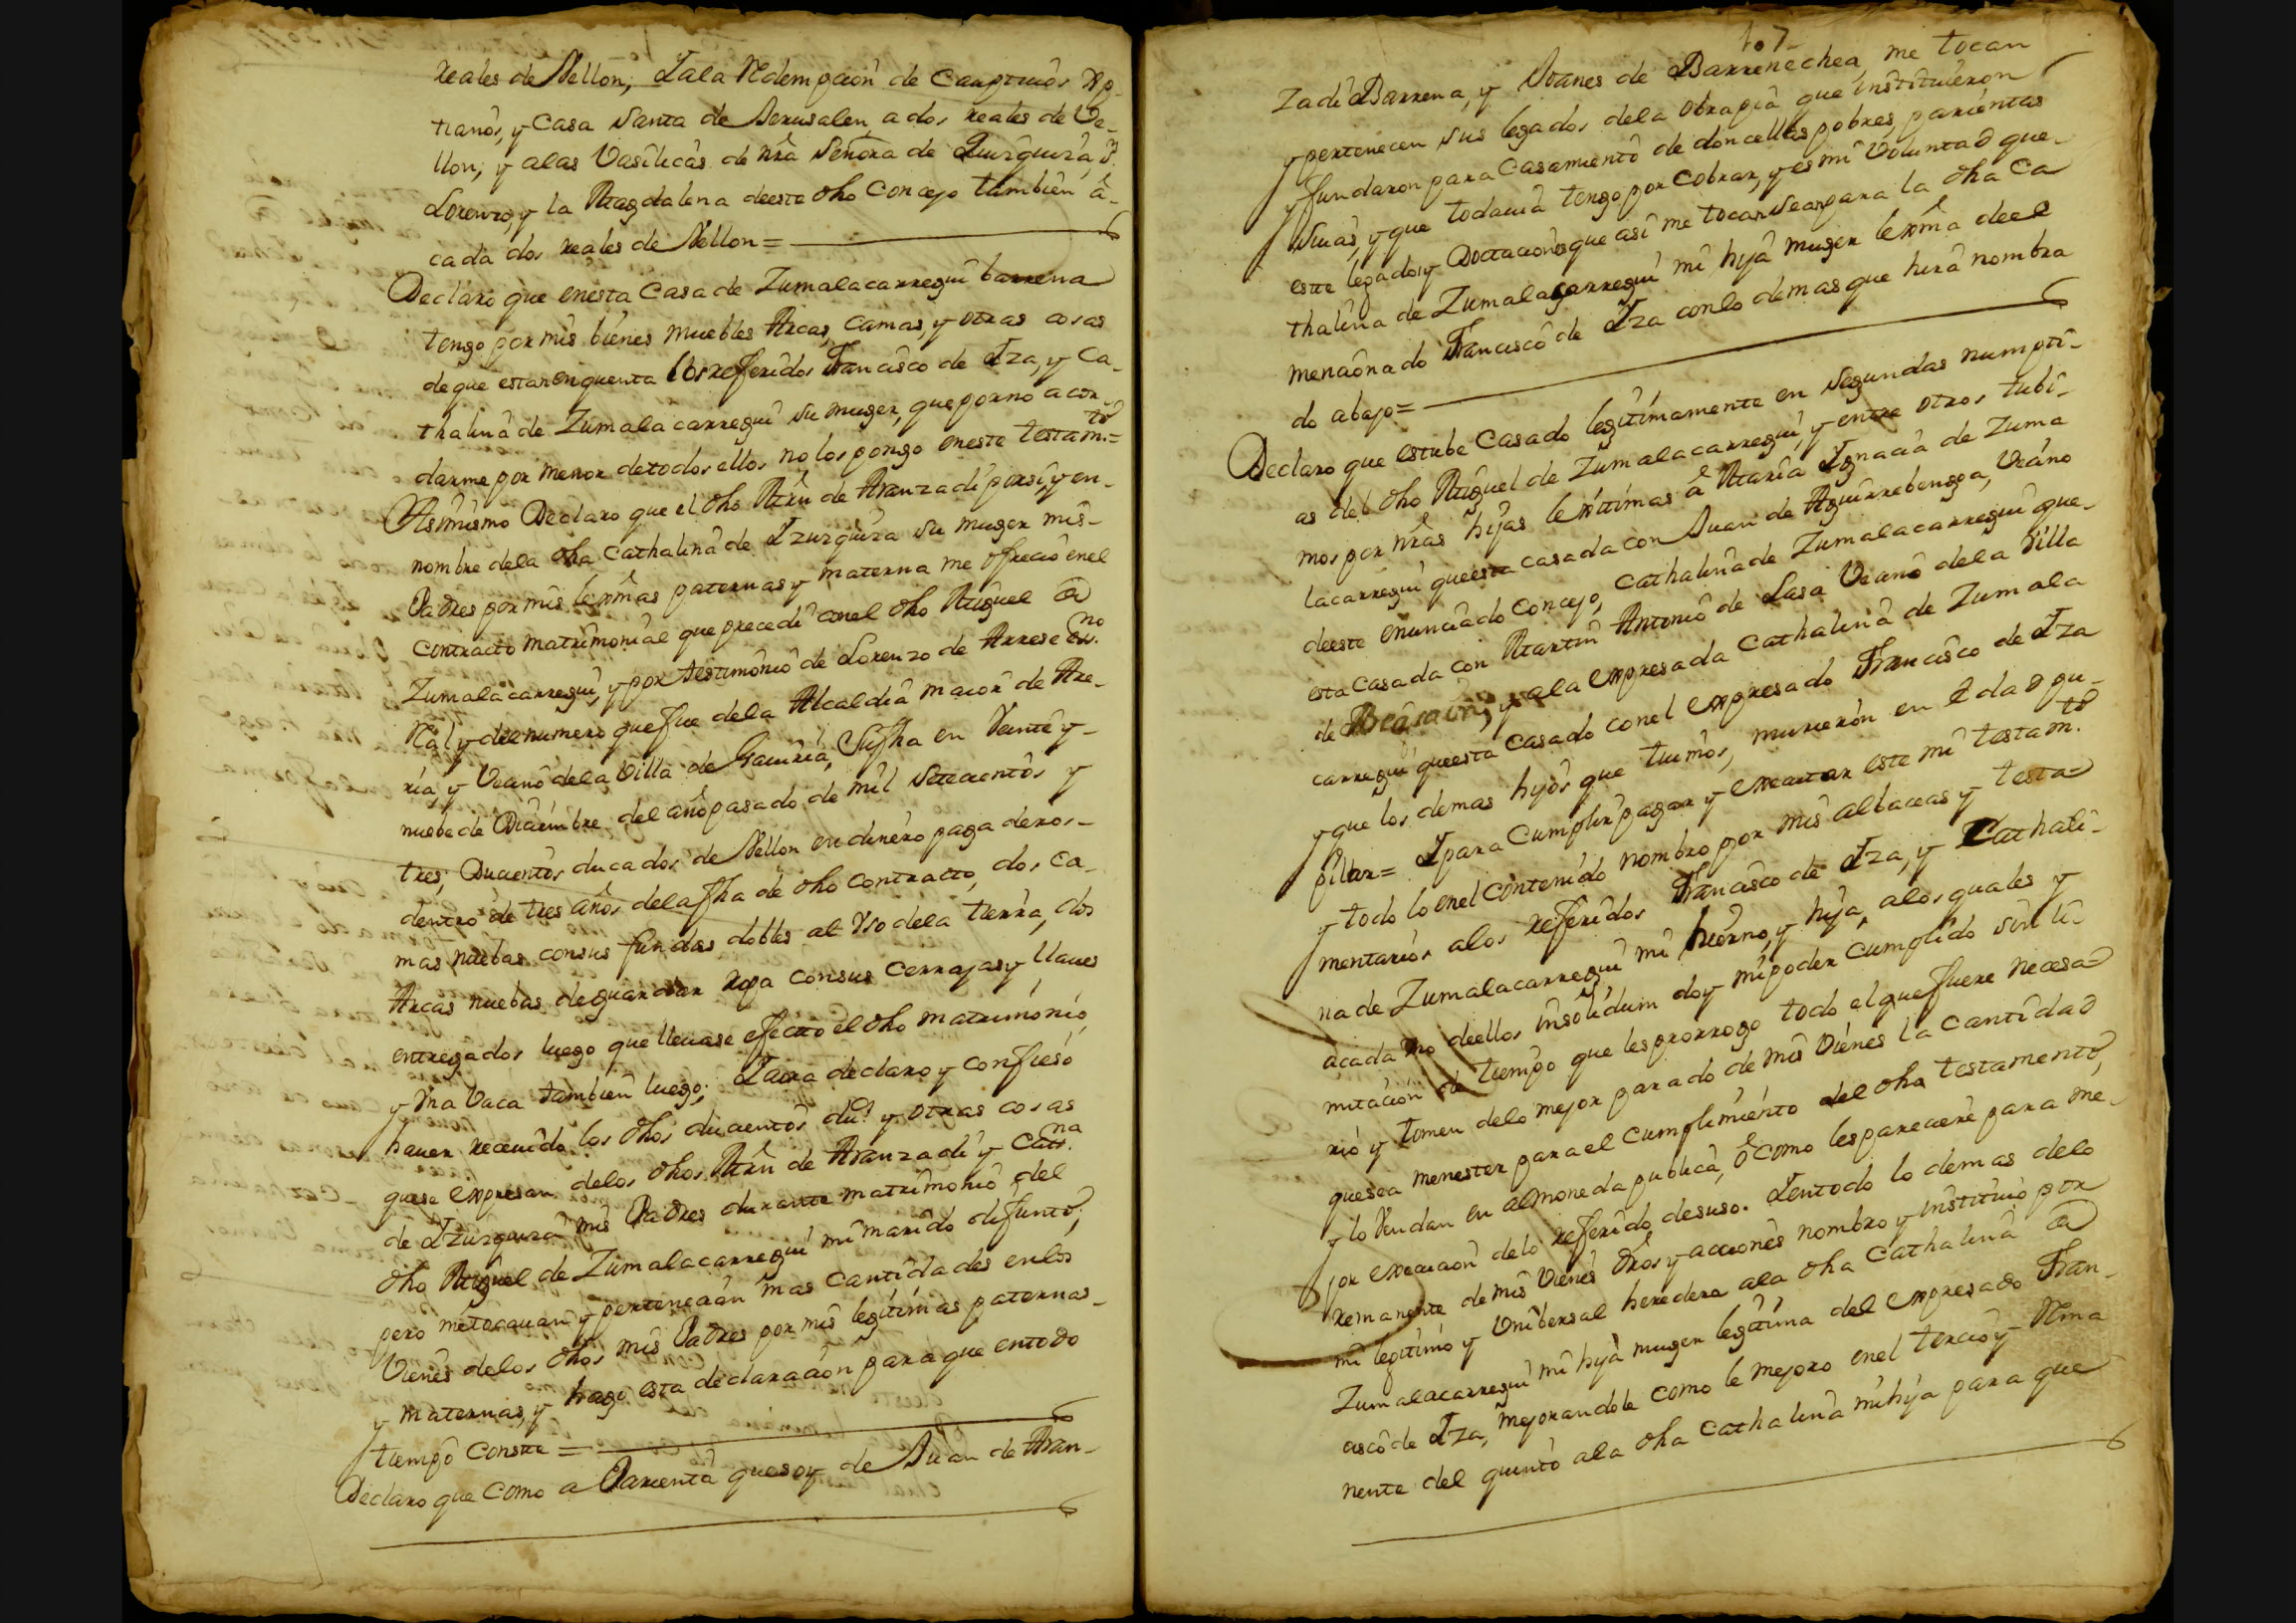 reales de Vellon; Y ala Redempcion de Cauptiuos Xp-
tianos, y Casa Santa de Jerusalen, a dos reales de Ve-
llon; y alas Vasilicas de nrã Señora de Yurguira, Sn.
Lorenzo, y la Magdalena deeste dho Concejo tambien â-
cada dos reales de Vellon =
Declaro que enesta Casa de Zumalacarregui barrena
tengo por mis bienes muebles Arcas, camas, y otras cosas
de que estan enquenta los referidos Francisco de Yza, y Ca-
thalina de Zumalacarregui su muger, que por no acor-
darme por menor de todos ellos no los pongo eneste testam.to =
Asimismo Declaro que el dho Mrñ de Aranzadi por si, y en-
nombre dela dha Cathalina de Yzurguiza su muger mis-
Padres por mis lexmãs paternas y materna me ofrecio enel
contracto matrimonial que precedi conel dho Miguel de
Zumalacarregui, y por testimonio de Lorenzo de Arrese ess.no
Real y del numero que fue dela Alcaldia maior de Are-
ria, y Vecino dela Villa de Gauiria, Su fha en Veinte y-
nuebe de Diciembre del año pasado de mil Setecientos y
tres; Ducientos ducados de Vellon en dinero pagaderos-
dentro de tres años dela fha de dho contracto, dos ca-
mas nuebas consus fundas dobles al Vso dela tierra, dos
Arcas nuebas de guardar ropa consus cerrajas y llaues
entregados luego que lleuase efecto el dho matrimonio,
y Vna Vaca tambien luego; Y aora declaro y confieso
hauer receuido los dhos ducientos du.s y otras cosas
quese expresan delos dhos Mrñ de Aranzadi y Cath.na
de Yzurguiza mis Padres durante matrimonio del
dho Miguel de Zumalacarregui mi marido difunto;
pero me tocauan y pertenecian mas cantidades enlos
Vienes delos dhos mis Padres por mis legitimas paternas-
y maternas, y hago esta declaracion para que entodo
tiempo conste =
Declaro que como a Parienta que soy de Juan de Aran-
107
zadi Barrena, y Joanes de Barrenechea, me tocan
y pertenecen sus legados dela obra pia que instituieron
y fundaron para Casamiento de doncellas pobres, parientas
suias, y que todauia tengo por cobrar, y es mi Voluntad que-
este legado y Doctaciones que asi me tocan sean para la dha Ca
thalina de Zumalacarregui mi hija muger lexmã deel
mencionado Francisco de Yza conlo demas que hirâ nombra
do abajo =
Declaro que estube Casado legitimamente en Segundas numpti-
as del dho Miguel de Zumalacarregui, y entre otros tubi-
mos por nrãs hijas lexitimas â Maria Ygnacia de Zuma
lacarregui queesta casada con Juan de Aguirrebengoa, Vecino
deeste enunciado Concejo, Cathalina de Zumalacarregui que-
esta Casada con Martin Antonio de Lasa Vecino dela Villa
de Beasain, y ala expresada Cathalina de Zumala
carregui queesta casado conel expresado Francisco de Yza
y que los demas hijos que tuimos, murieron en Edad pu-
pilar = Y para Cumplir pagar y executar este mi testam.to
y todo lo enel contenido nombro por mis albaceas y testa-
mentarios alos referidos Francisco de Yza, y Cathali-
na de Zumalacarregui mi hierno, y hija, alos quales y
acada Vno deellos insolidum doy mi poder cumplido sin li-
mitacion de tiempo que les prorrogo todo el que fuere necesa-
rio y tomen delo mejor parado de mis Vienes la cantidad
quesea menester para el Cumplimiento del dho testamento,
y lo Vendan en almoneda publica, ô como les pareciere para me-
jor execucion delo referido desuso. Y entodo lo demas delo
remanente de mis Vienes dros y acciones nombro y instituio por
mi legitimo y Vnibersal heredera ala dha Cathalina de
Zumalacarregui mi hija muger legitima del expresado Fran-
cisco de Yza, mejorandola como le mejoro enel tercio y Rema
nente del quinto ala dha Cathalina mi hija para que